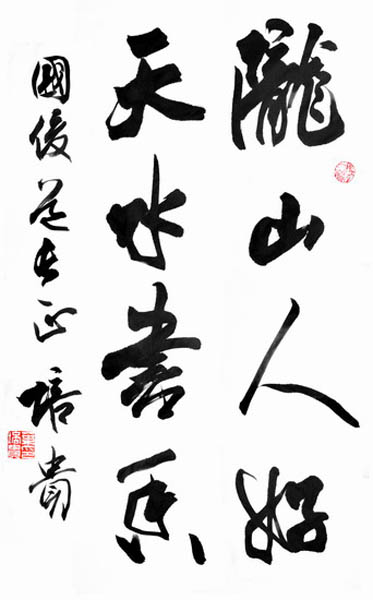 隴山人好
天水書香
國俊道長正 培貴